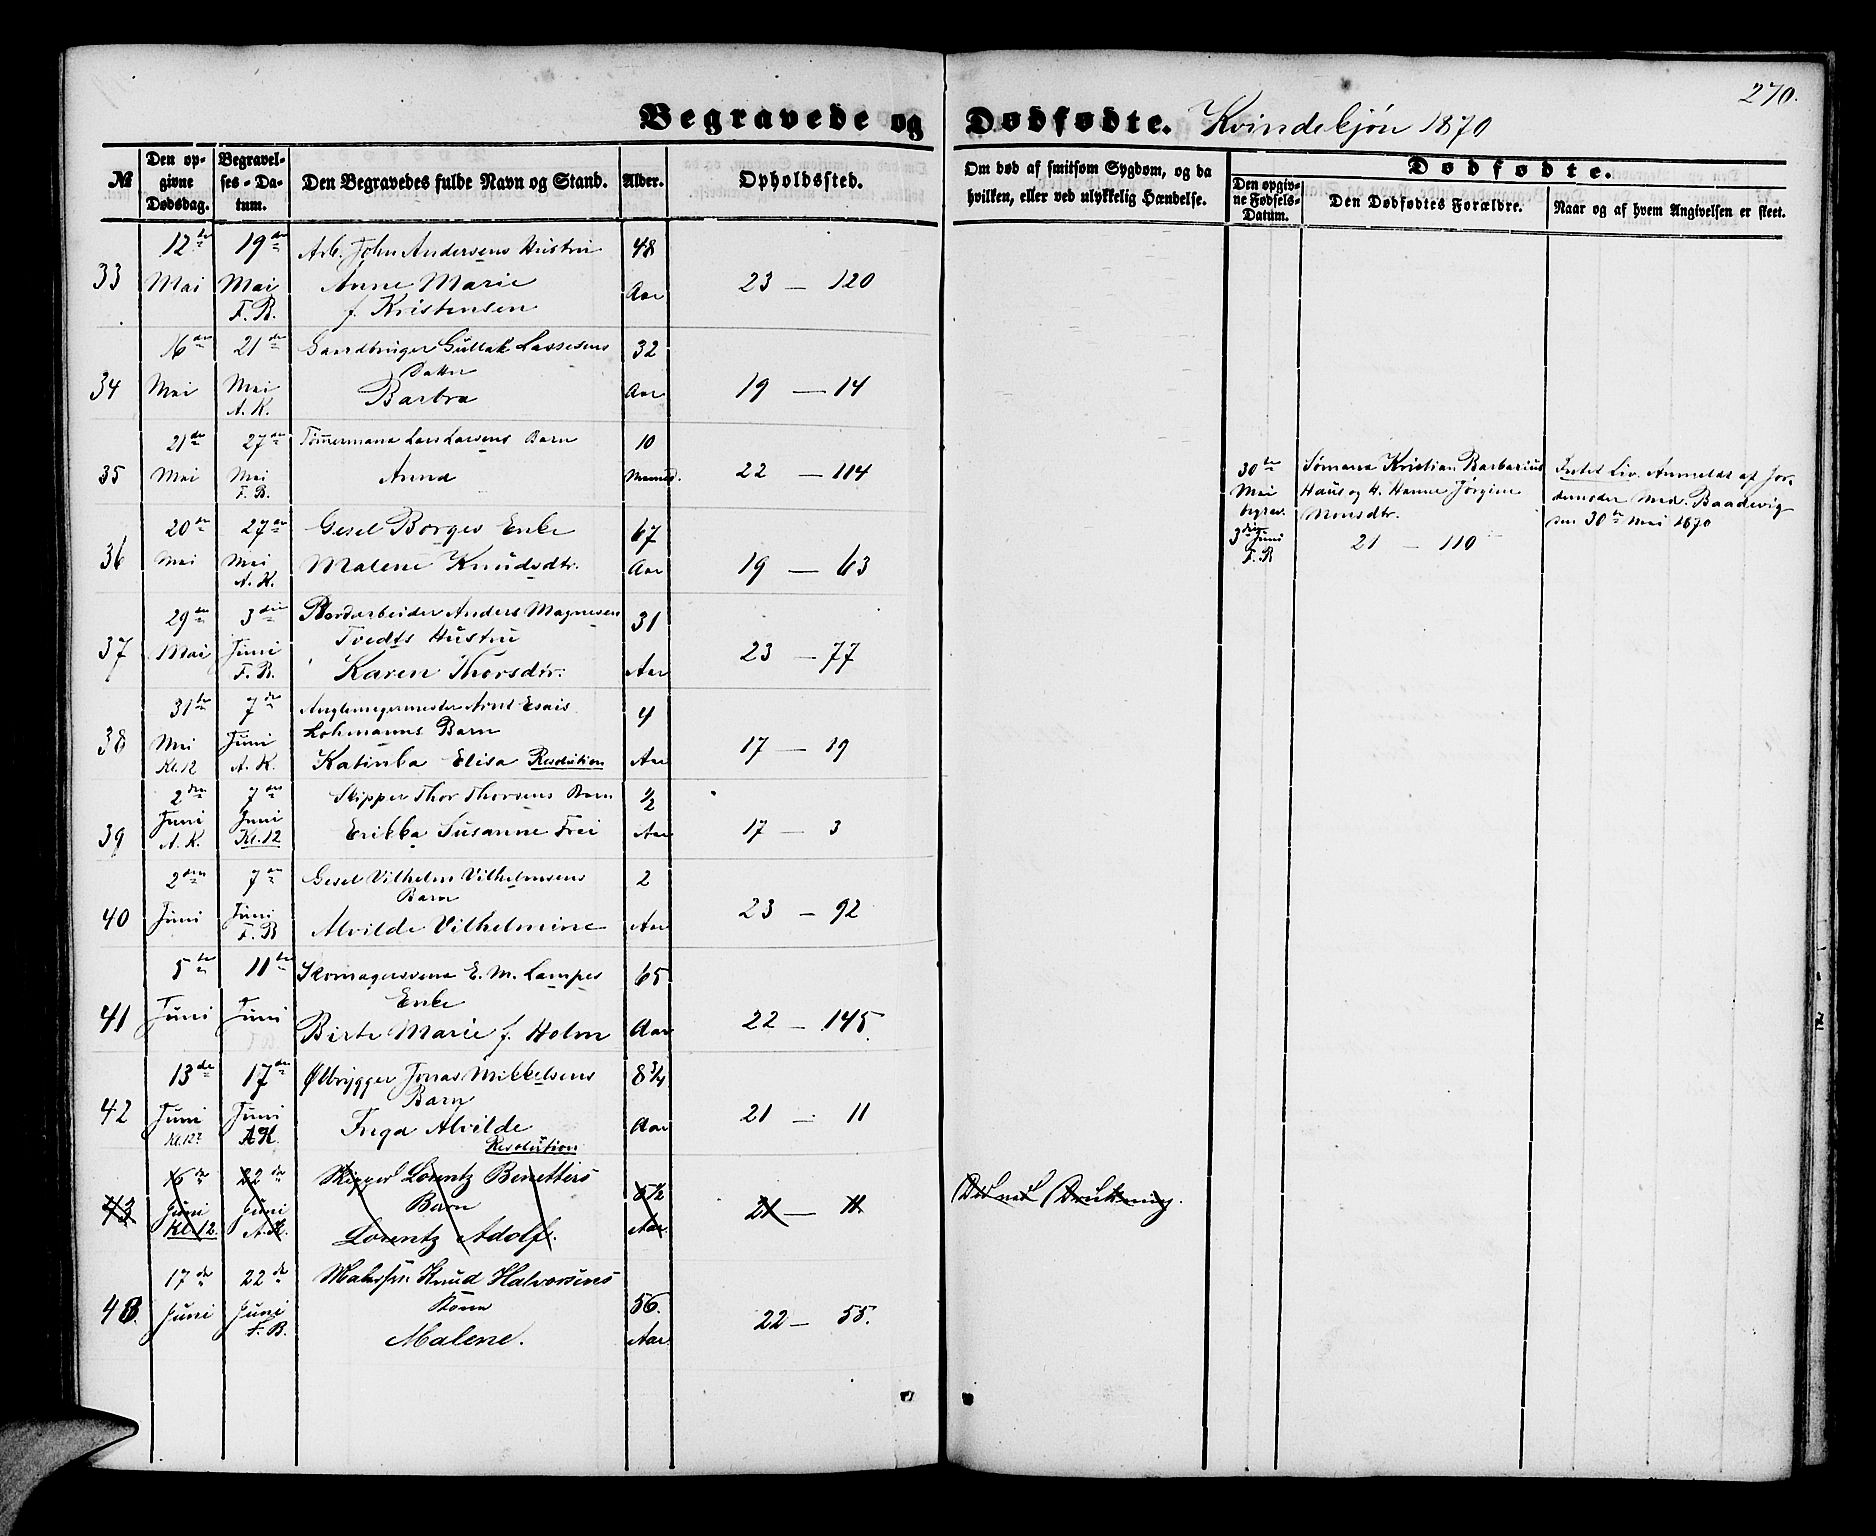 270.
Begravede og Dødfødte. Kvindekjøn 1870
№
Den op-
givne
Dødsdag.
Begravel-
ses-Da-
tum.
Den Begravedes fulde Navn og Stand.
Alder.
Opholdssted.
Om død af smitsom Sygdom, og da
hvilken, eller ved ulykkelig Hændelse.
Dødfødte.
Den opgiv-
ne Fødsels-
Datum.
Den Dødfødtes Forældre.
Naar og af hvem Angivelsen er skeet.
12te 19de Arb. John Andersens Hustru 48
33 Mai Mai Anne Marie Aar 23 — 120
F. B. f. Kristensen
16de 21de Gaardbruger Gullak Lassesens 32
Datter
34 Mai Mai Barbra Aar 19 — 14
A. K.
21de 27de Tømermand Lars Larsens Barn 10
35 Mai Mai Anna Maaned. 22 — 114
F. B.
20de 27de Gesel Borges Enke 67
36 Mai Mai Malene Knudsdtr. Aar 19 — 63
A. K.
29de 3die Bordarbeider Anders Magnesen 31
Tvedts Hustru
37 Mai Juni Karen Thorsdtr. Aar 23 — 77
F. B.
31te 7de Arnt Esais 4
Lohmanns Barn
38 Mai Juni Katinka Elisa Resolution Aar 17 — 19
Kl. 12 A. K.
2den 7de Skipper Thor Thorsens Barn ½
39 Juni Juni Erikka Susanne Frei Aar 17 — 3
A. K. Kl. 12
2den 7de Gesel Vilhelm Vilhelmsens 2
Barn
40 Juni Juni Alvilde Vilhelmine Aar 23 — 92
F. B
5te 11te Skomagersvend E. M. Lampes 65
Enke
41 Juni Juni Birte Marie f. Holm Aar 22 — 145
13de 17de Ølbrygger Jonas Mikkelsens 8 3/4
Barn
42 Juni Juni Inga Alvilde Aar 21 — 11
Kl. 12 AK. Resolution
16de 22de Skipper Lorentz Benetters 5½
Barn
43 Juni Juni Lorentz Adolf. Aar 21 — 11 Død ved Drukning.
Kl. 12. A. K.
17de 22de Knud Halvorsens
Kone 56.
43. Juni Juni Malene. Aar 22 — 55.
F. B.
30te
Mai
begrav.
3die Juni
F. B
Sømand Kristian Barbarius
Haus og H. Hanne Jørgine
Monsdtr.
21 — 110
Intet Liv. Anmeldt af Jor-
demoder Md. Baadevig
den 30te Mai 1870